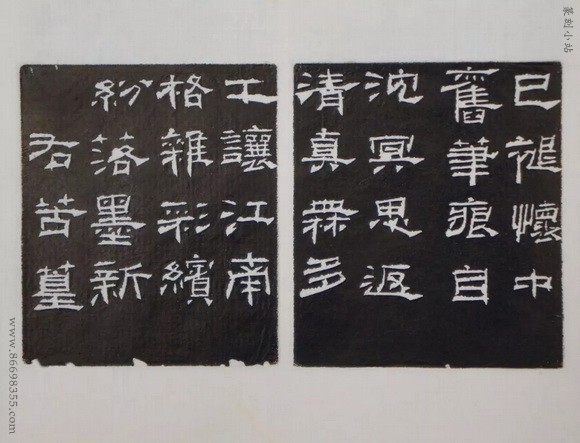 已褪懷中
舊筆痕自
沈冥思返
清真無多
工讓江南
格雜彩繽
紛落墨新
右苦墓
篆刻小站
www.86698355.com